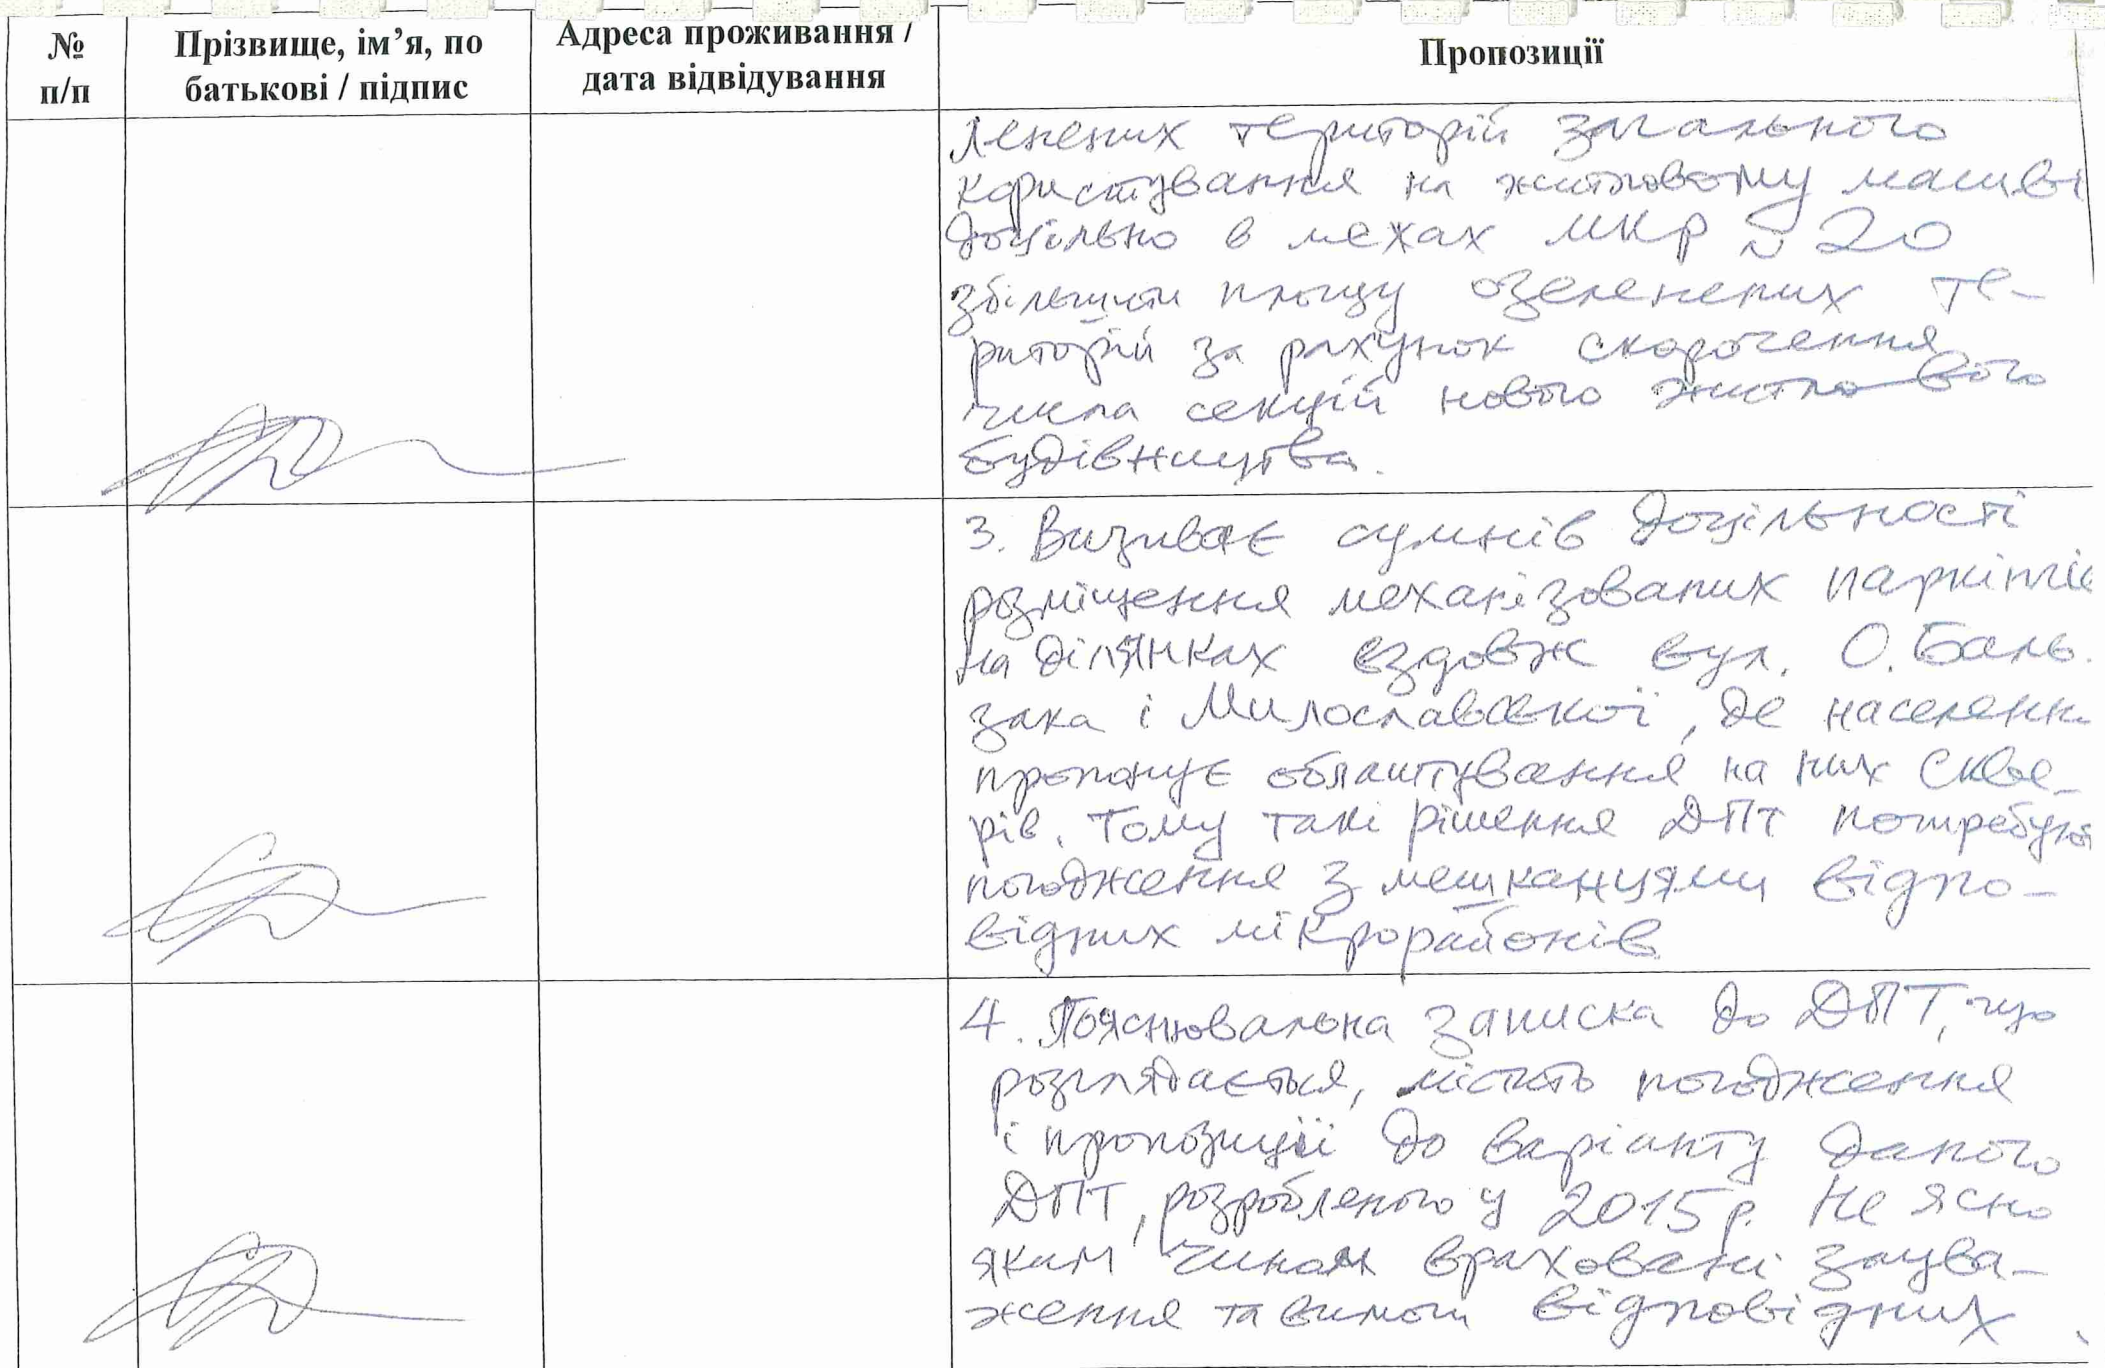 № п/п
Прізвище, ім’я, по батькові / підпис
Адреса проживання / дата відвідування
Пропозиції
ленених територій загального
користування на житловому масиві
доцільно в межах мкр № 20
збільшити площу озеленених те-
риторій за рахунок скорочення
числа секцій нового житлового
будівництва.
3. Визиває сумнів доцільності
розміщення механізованих паркінгів
на ділянках вздовж вул. О. Баль-
зака і Милославської, де населенн
пропонує облаштування на них скве-
рів. Тому такі рішення ДПТ потребують
погодження з мешканцями відпо-
відних мікрорайонів
4. Пояснювальна записка до ДПТ, що
розглядається, містить погодження
і пропозиції до варіанту даного
ДПТ, розробленого у 2015 р. Не ясно
яким чином враховані заува-
ження та вимоги відповідних